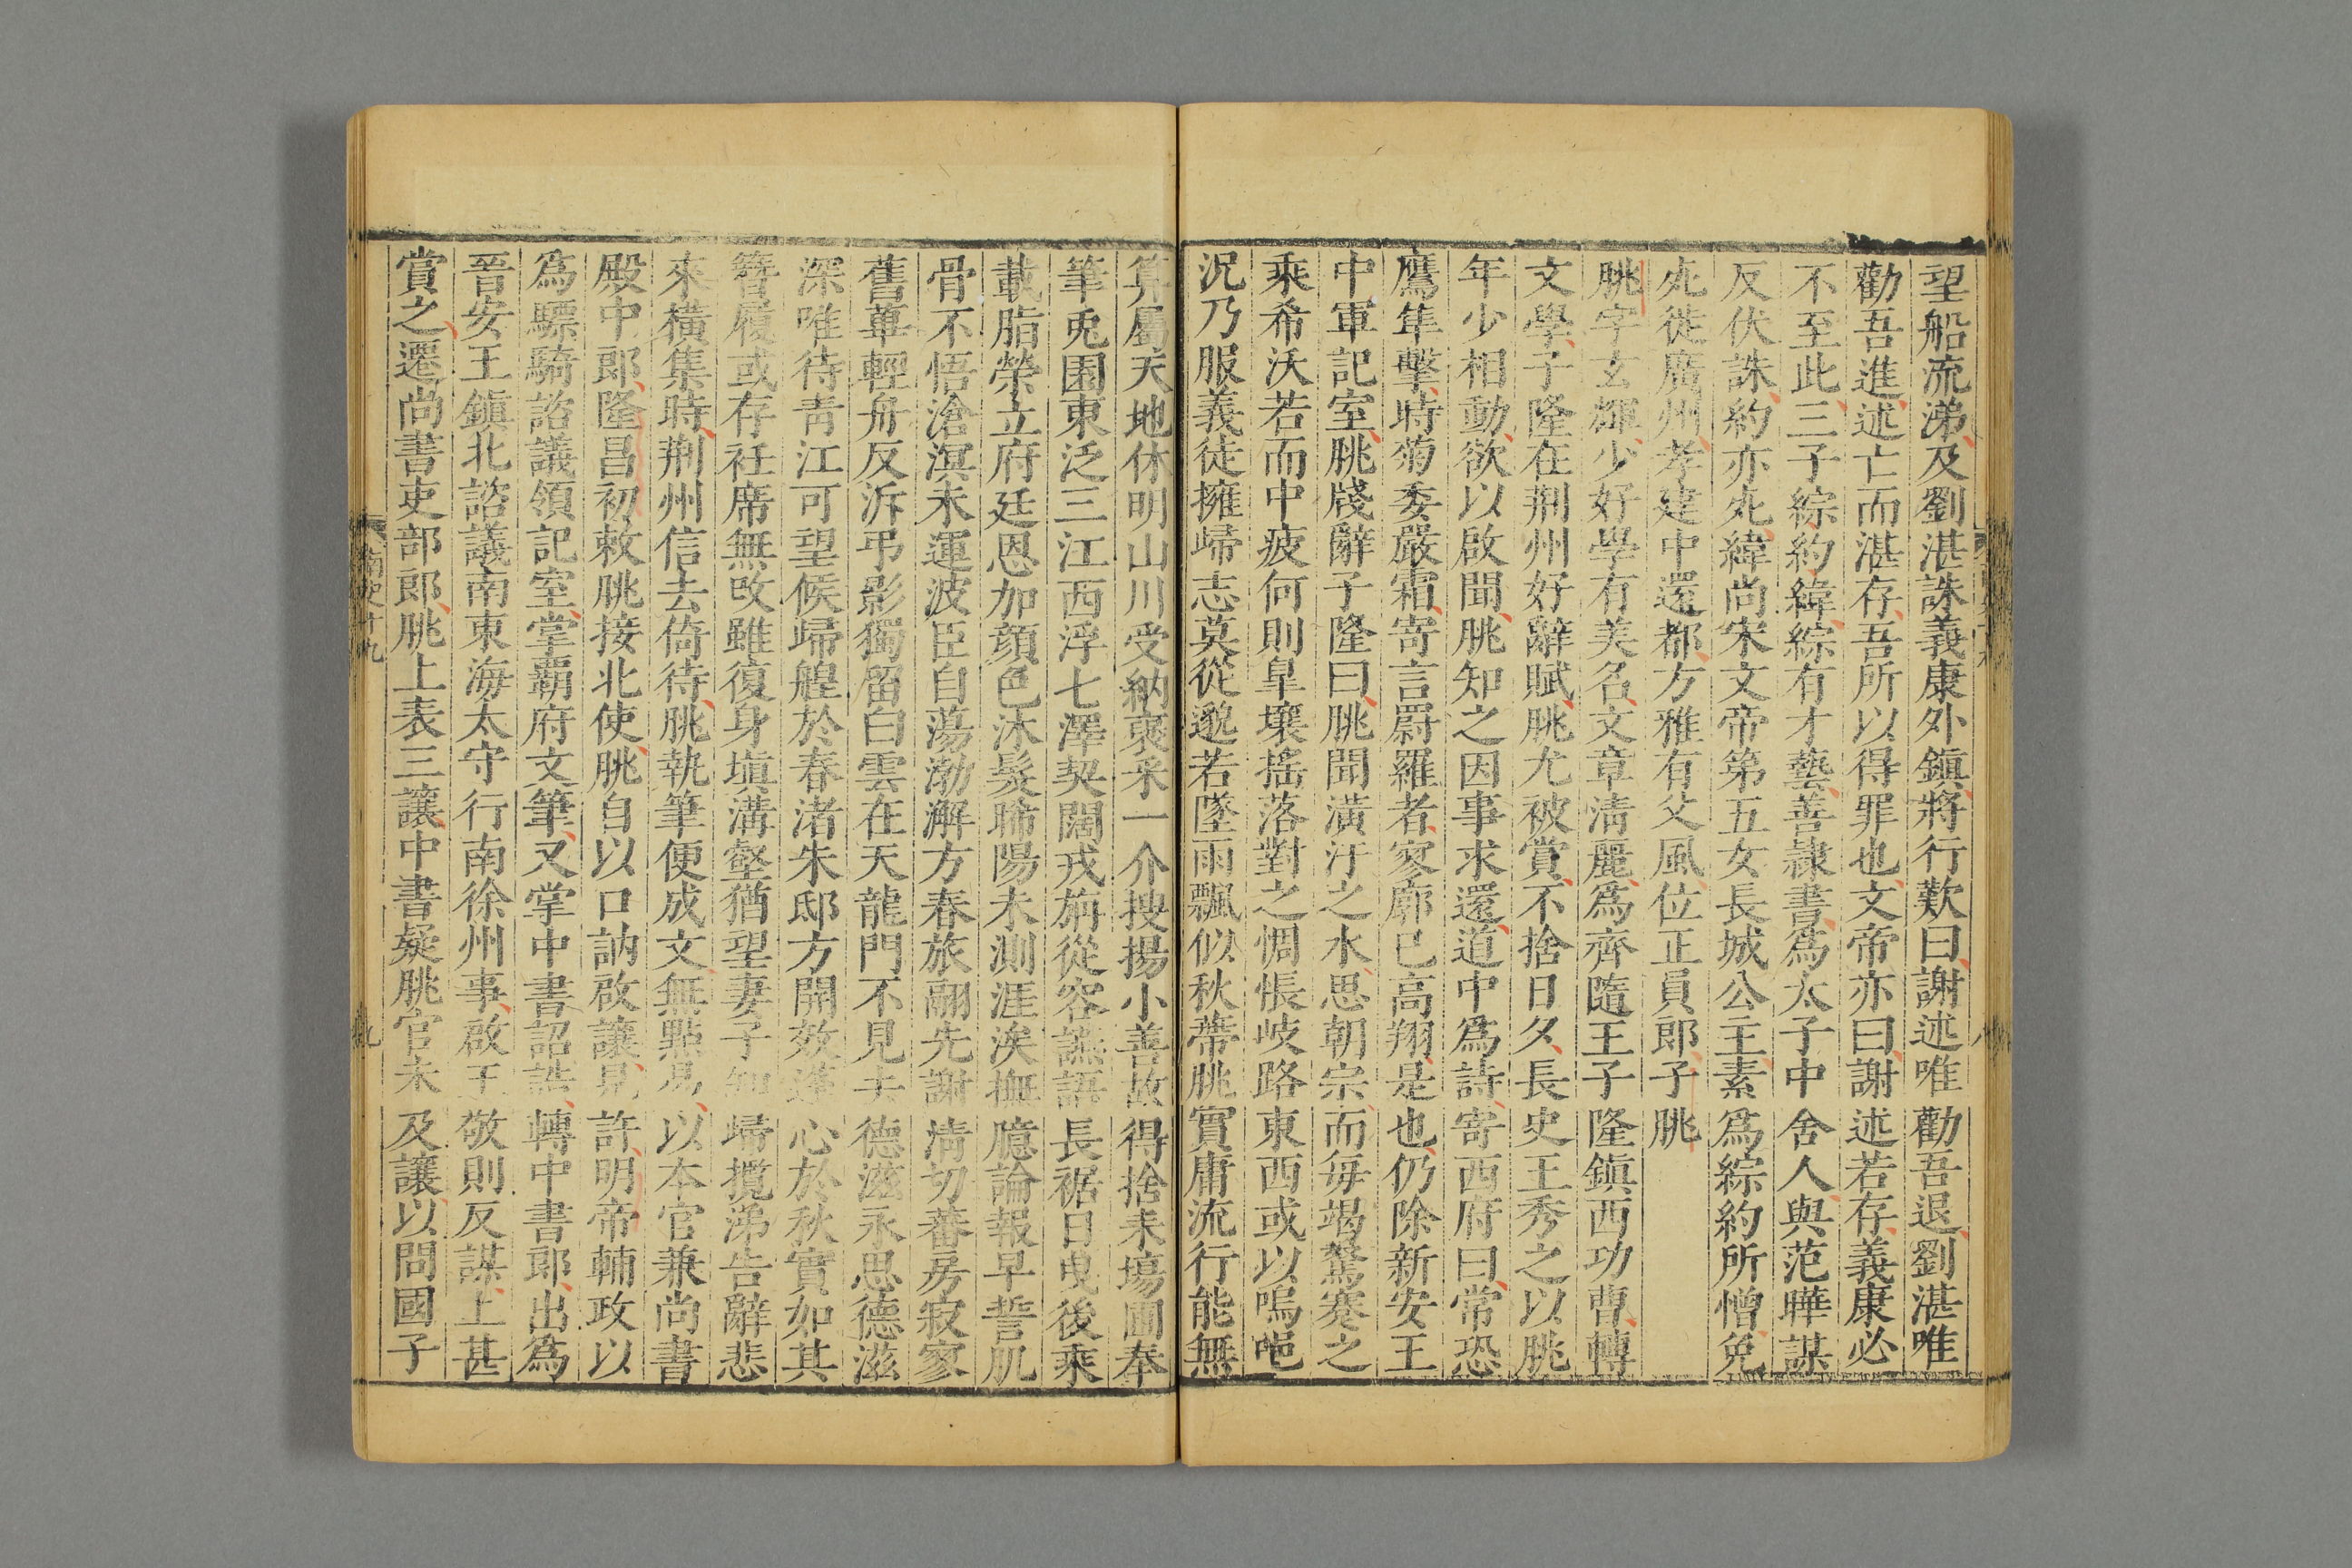 望船流涕及劉湛誅義康外鎮將行歎曰謝述唯勸吾退劉湛唯
勸吾進述亡而湛存吾所以得罪也文帝亦曰謝述若存義康必
不至此三子綜約緯綜有才藝善隷書爲太子中舍人與范曄謀
反伏誅約亦死緯尚宋文帝第五女長城公主素爲綜約所憎免
死徙廣州孝建中還都方雅有父風位正員郎子朓
朓字玄暉少好學有美名文章淸麗爲齊隨王子隆鎮西功曹轉
文學子隆在荆州好辭賦朓尤被賞不捨日夕長史王秀之以朓
年少相動欲以啟聞朓知之因事求還道中爲詩寄西府曰常恐
鷹隼擊時菊委嚴霜寄言罻羅者寥廓已高翔是也仍除新安王
中軍記室朓牋辭子隆曰朓聞潢汙之水思朝宗而每竭駑蹇之
乘希沃若而中疲何則皐壤搖落對之惆悵岐路東西或以嗚唈
況乃服義徒擁歸志莫從邈若墜雨飄似秋蔕朓實庸流行能無
算屬天地休明山川受納襃采一介搜揚小善故得捨耒塲圃奉
筆兎園東泛三江西浮七澤契闊戎旃從容讌語長裾日曳後乘
載脂榮立府廷恩加顔色沐髮晞陽未測涯涘撫臆論報早誓肌
骨不悟滄溟未運波臣自蕩渤澥方春旅翮先謝淸切蕃房寂寥
舊蓽輕舟反泝弔影獨留白雲在天龍門不見去德滋永思德滋
深唯待靑江可望候歸艎於春渚朱邸方開效蓬心於秋實如其
簪履或存衽席無改雖復身塡溝壑猶望妻子知歸攬涕告辭悲
來橫集時荆州信去倚待朓執筆便成文無點易以本官兼尚書
殿中郎隆昌初敕朓接北使朓自以口訥啟讓見許明帝輔政以
爲驃騎諮議領記室掌霸府文筆又掌中書詔誥轉中書郎出爲
晉安王鎮北諮議南東海太守行南徐州事啟王敬則反謀上甚
賞之遷尚書吏部郎朓上表三讓中書疑朓官未及讓以問國子
南史十九
九